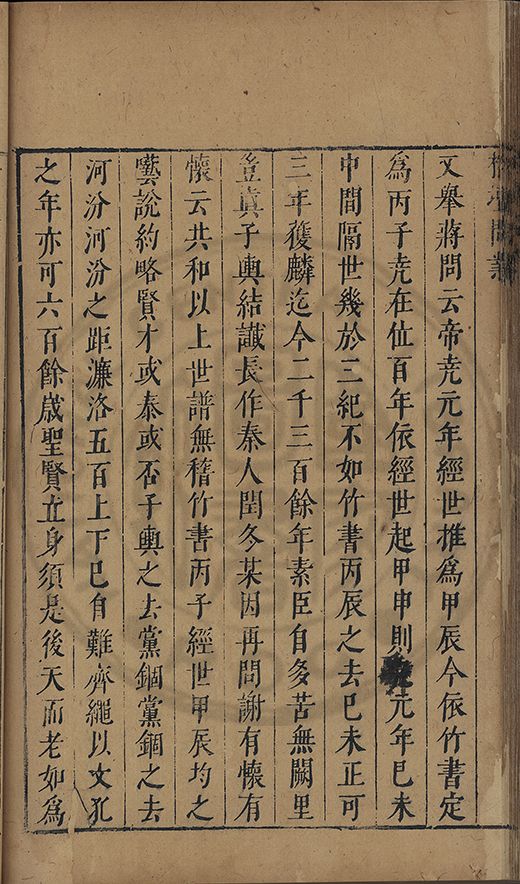 文舉蔣問云帝堯元年經世推為甲辰今依竹書定
為丙子堯在位百年依經世起甲申則元年巳未
中間隔世幾於三紀不如竹書丙辰之去巳未正可
三年獲麟迄今二千三百餘年素臣自多苦無闕里
豈真子輿結讖長作秦人閏冬某因再問謝有懷有
懷云共和以上世譜無稽竹書丙子經世甲辰均之
囈說約略賢才或泰或否子輿之去黨錮黨錮之去
河汾河汾之距濂洛五百上下巳自難齊繩以文犯
之年亦可六百餘歲聖賢立身須是後天而老如為